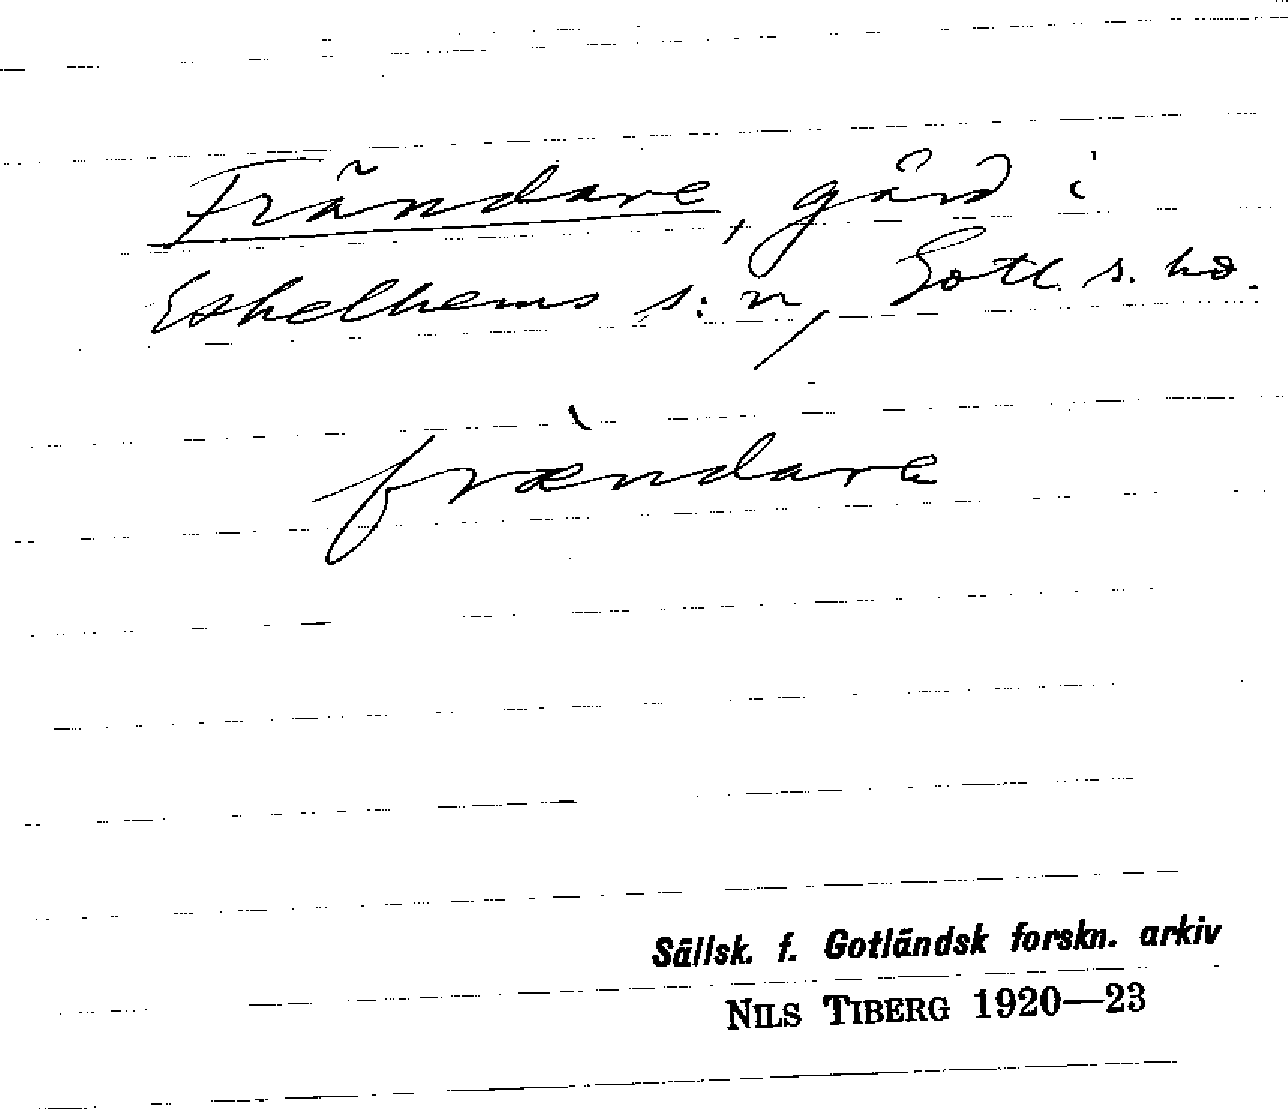 Frändare, gård i
Eskelhems s:n, Gotl. s. hd.
frændare
Sällsk. f. Gotländsk forskn. arkiv
NILS TIBERG 1920—23